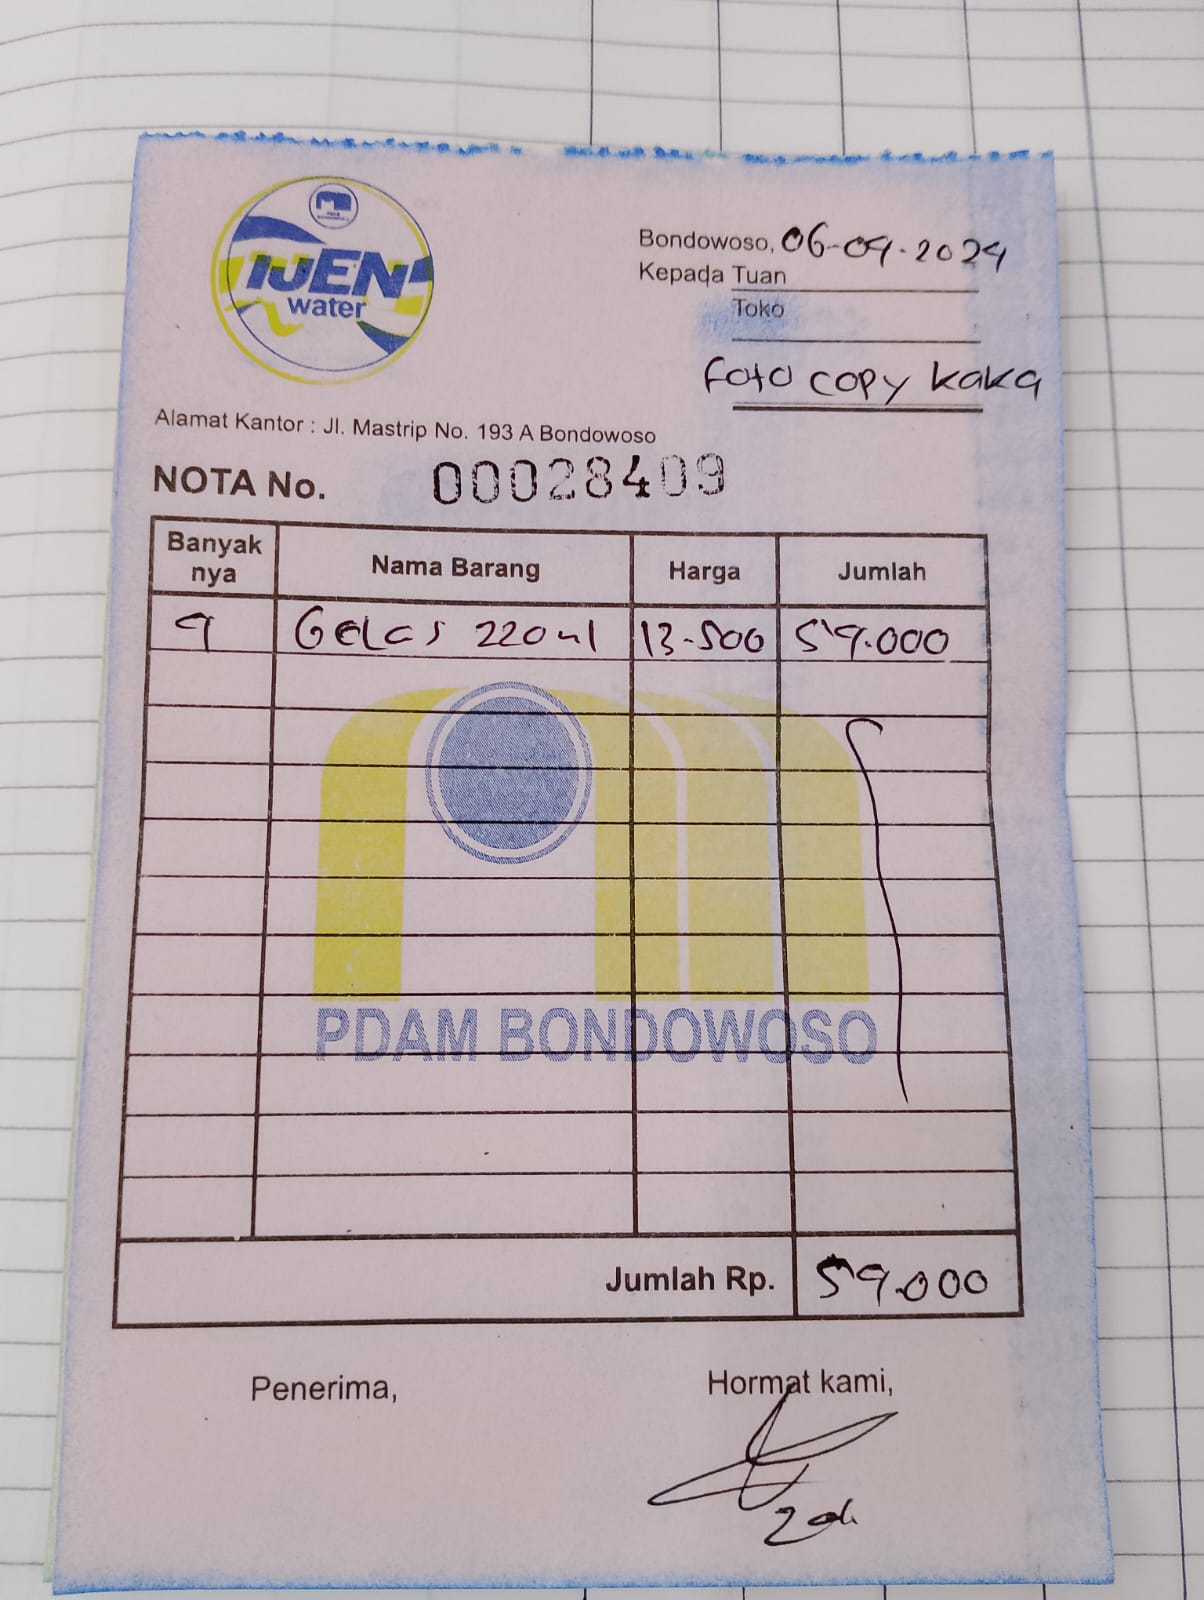 IJEN
water
Bondowoso, 06-04-2024
Kepada Tuan
Toko
Foto copy kaka
Alamat Kantor : Jl. Mastrip No. 193 A Bondowoso
NOTA No. 00028409
Banyak nya Nama Barang Harga Jumlah
4 Gelas 220 ml 13.500 54.000
PDAM BONDOWOSO
Jumlah Rp. 54.000
Penerima, Hormat kami,